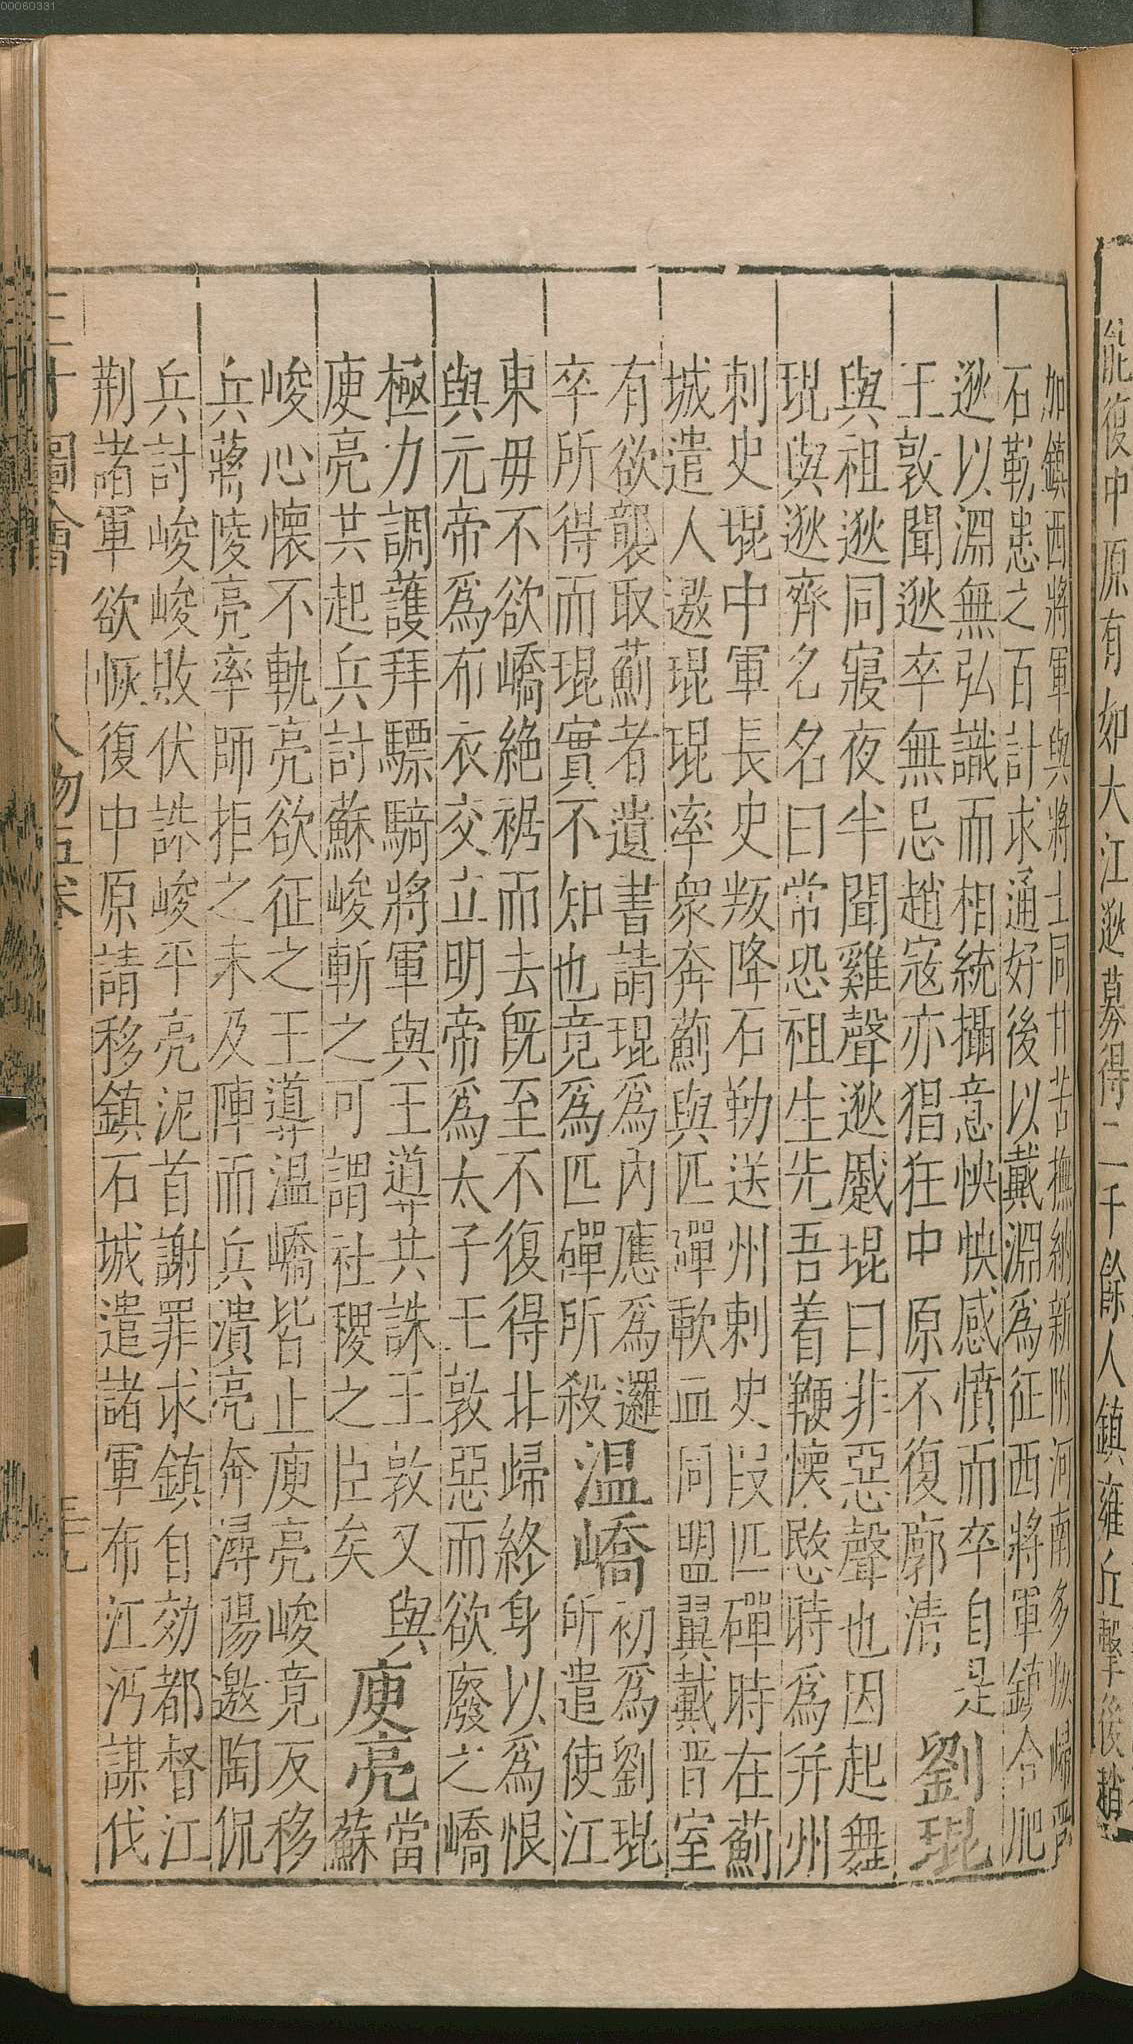 能復中原有如大江逖募得二千餘人鎮雍丘擊後趙
加鎮西將軍與將士同甘苦撫納新附河南多叛歸晉
石勒患之百計求通好後以戴淵為征西將軍鎮合肥
逖以淵無弘識而相統攝意怏怏感憤而卒自是
王敦聞逖卒無忌趙寇亦猖狂中原不復廓清 劉琨
與祖逖同寢夜半聞雞聲逖蹴琨曰非惡聲也因起舞
琨與逖齊名名曰常恐祖生先吾着鞭懷愍時為并州
刺史琨中軍長史叛降石勒送州刺史段匹磾時在薊
城遣人邀琨琨率衆奔薊與匹磾歃血同盟翼戴晉室
有欲襲取薊者遺書請琨為内應為邏
卒所得而琨實不知也竟為匹磾所殺 温嶠 初為劉琨
所遣使江
東毋不欲嶠絶裾而去旣至不復得北歸終身以為恨
與元帝為布衣交立明帝為太子王敦惡而欲廢之嶠
極力調護拜驃騎將軍與王導共誅王敦又與
庾亮共起兵討蘇峻斬之可謂社稷之臣矣 庾亮 當
蘇
峻心懷不軌亮欲征之王導温嶠皆止庾亮峻竟反移
兵蔣陵亮率師拒之未及陣而兵潰亮奔潯陽邀陶侃
兵討峻峻敗伏誅峻平亮泥首謝罪求鎮自効都督江
荆諸軍欲恢復中原請移鎮石城遣諸軍布江沔謀伐
三才圖會 人物五卷 三九
00060331